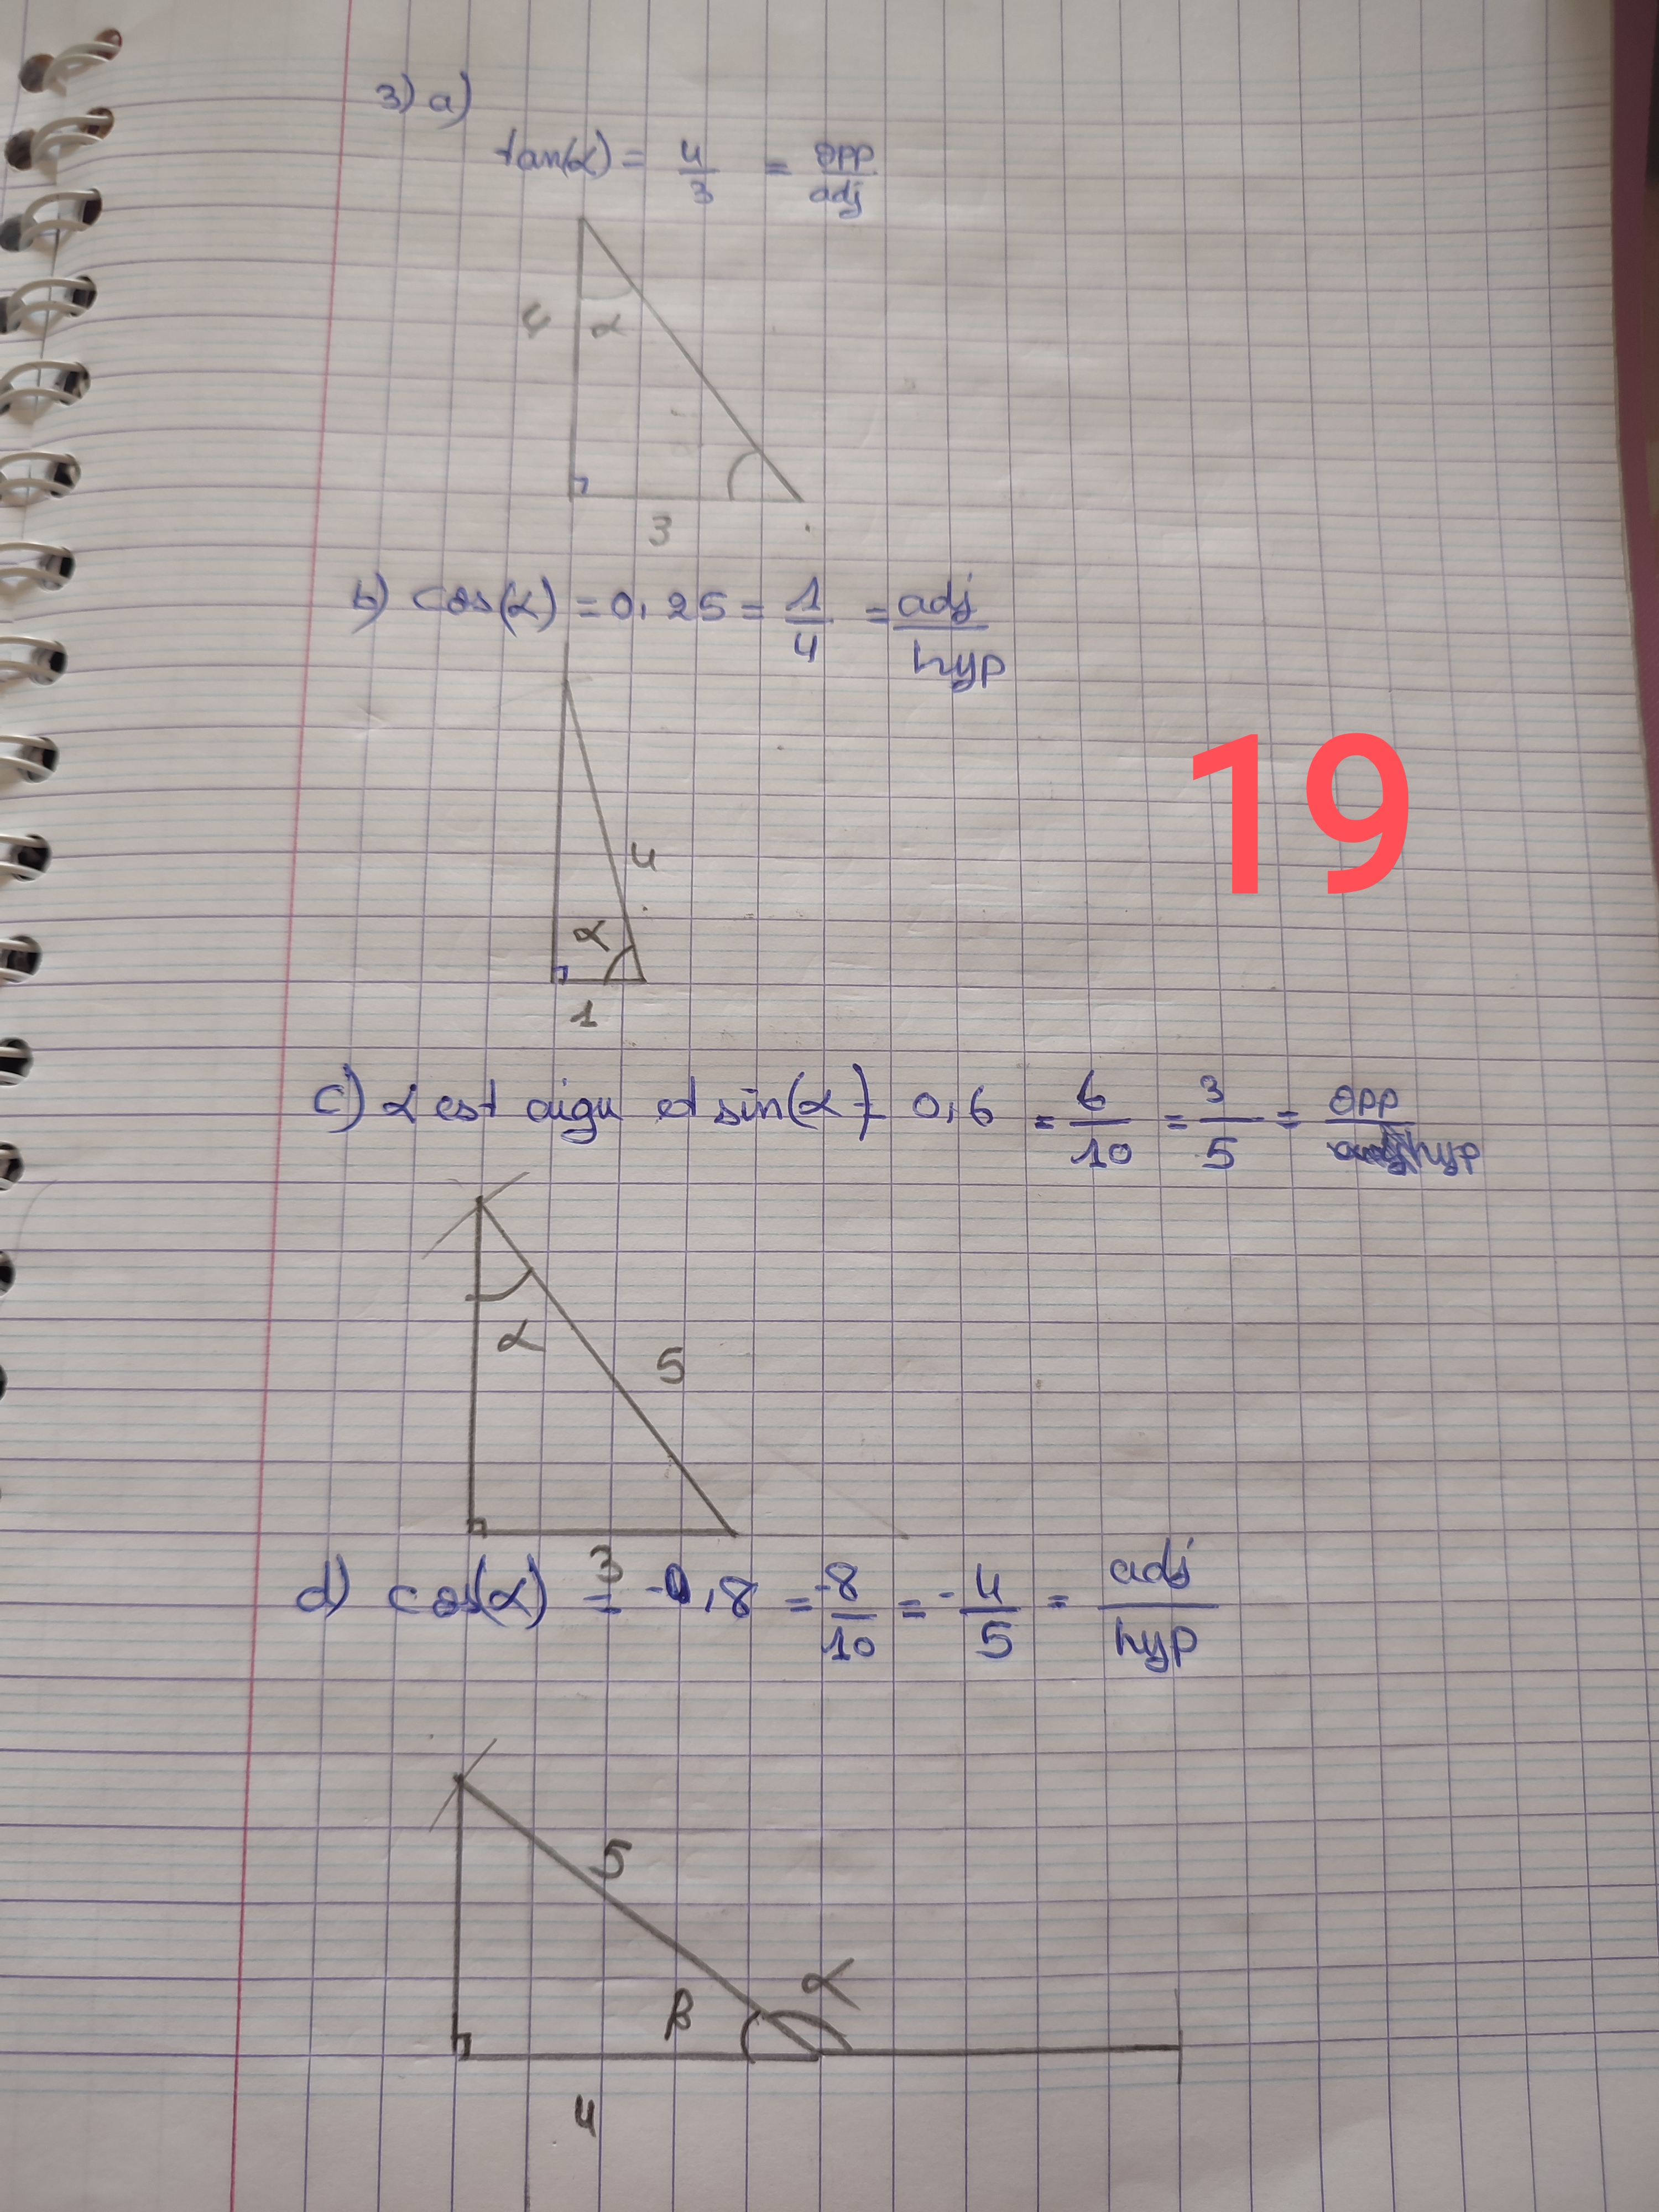 3) a)
tan(α) = 4/3 = opp/adj
4 α
3
b) cos(α) = 0,25 = 1/4 = adj/hyp
19
4
α
1
c) α est aigu et sin(α) = 0,6 = 6/10 = 3/5 = opp/hyp
α 5
3
d) cos(α) = -0,8 = -8/10 = -4/5 = adj/hyp
5
α
β
4